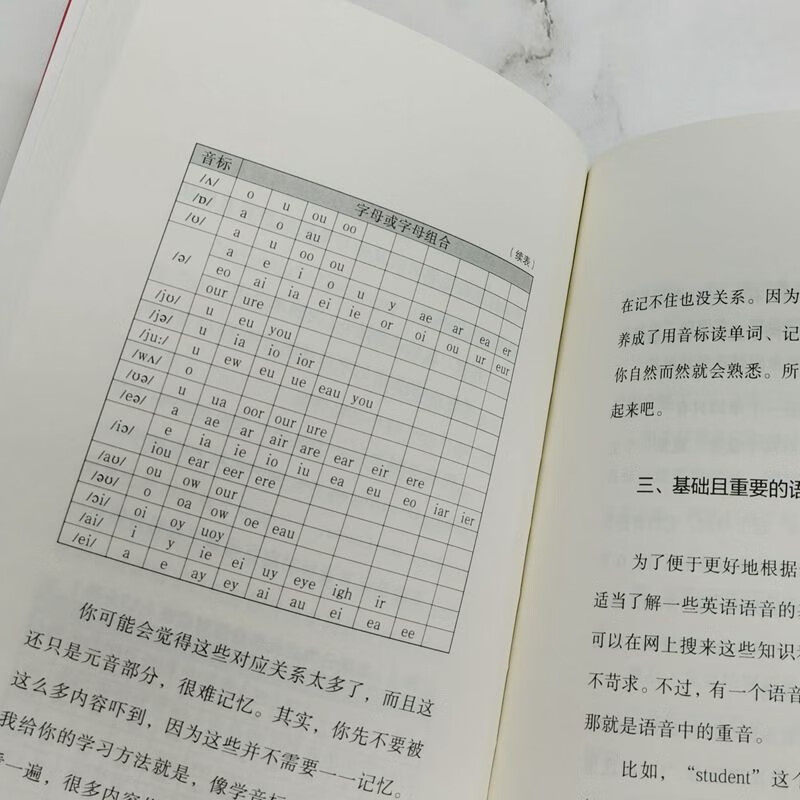 (续表)
音标 字母或字母组合
/ʌ/ o u ou oo
/ɒ/ a o au
/ʊ/ a u oo ou
/ə/ a e i o u y ae ar ea er
eo ai ia ei ie or oi ou ur eur
our ure
/jʊ/ u eu you
/jə/ u ia io ior
/ju:/ u ew eu ue eau you
/wʌ/ o
/ʊə/ u ua oor our ure
/eə/ a ae ar air are ear eir ere
/iə/ e ia ie io iu ea eu eo iar ier
iou ear eer ere
/aʊ/ ou ow our
/əʊ/ o oa ow oe eau
/ɔi/ oi oy uoy
/ai/ i y ie ei uy eye igh ir
/ei/ a e ay ey ai au ei ea ee
你可能会觉得这些对应关系太多了，而且这
还只是元音部分，很难记忆。其实，你先不要被
这么多内容吓到，因为这些并不需要一一记忆。
我给你的学习方法就是，像学音标
一遍，很多内容
在记不住也没关系。因为
养成了用音标读单词、记
你自然而然就会熟悉。所
起来吧。
三、基础且重要的语
为了便于更好地根据
适当了解一些英语语音的
可以在网上搜来这些知识
不苛求。不过，有一个语音
那就是语音中的重音。
比如，“student”这个